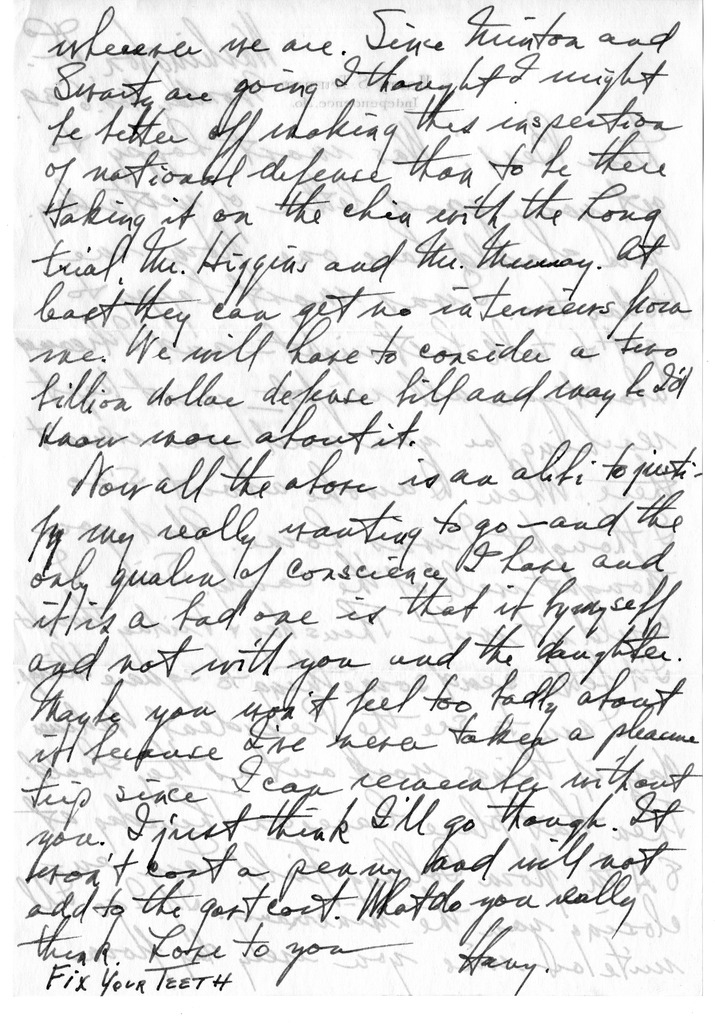 wherever we are. Since Minton and
Swarty are going I thought I might
be better off making this inspection
of national defense than to be there
taking it on the chin with the Long
trial, Mr. Higgins and Mr. Murray. At
least they can get no interviews from
me. We will have to consider a two
billion dollar defense bill and maybe I'd
know more about it.
Now all the above is an alibi to justi-
fy my really wanting to go—and the
only qualm of conscience I have and
it is a bad one is that it by myself
and not with you and the daughter.
Maybe you won't feel too badly about
it because I've never taken a pleasure
trip since I can remember without
you. I just think I'll go though. It
won't cost a penny and will not
add to the govt cost. What do you really
think. Love to you
Harry.
FIX YOUR TEETH